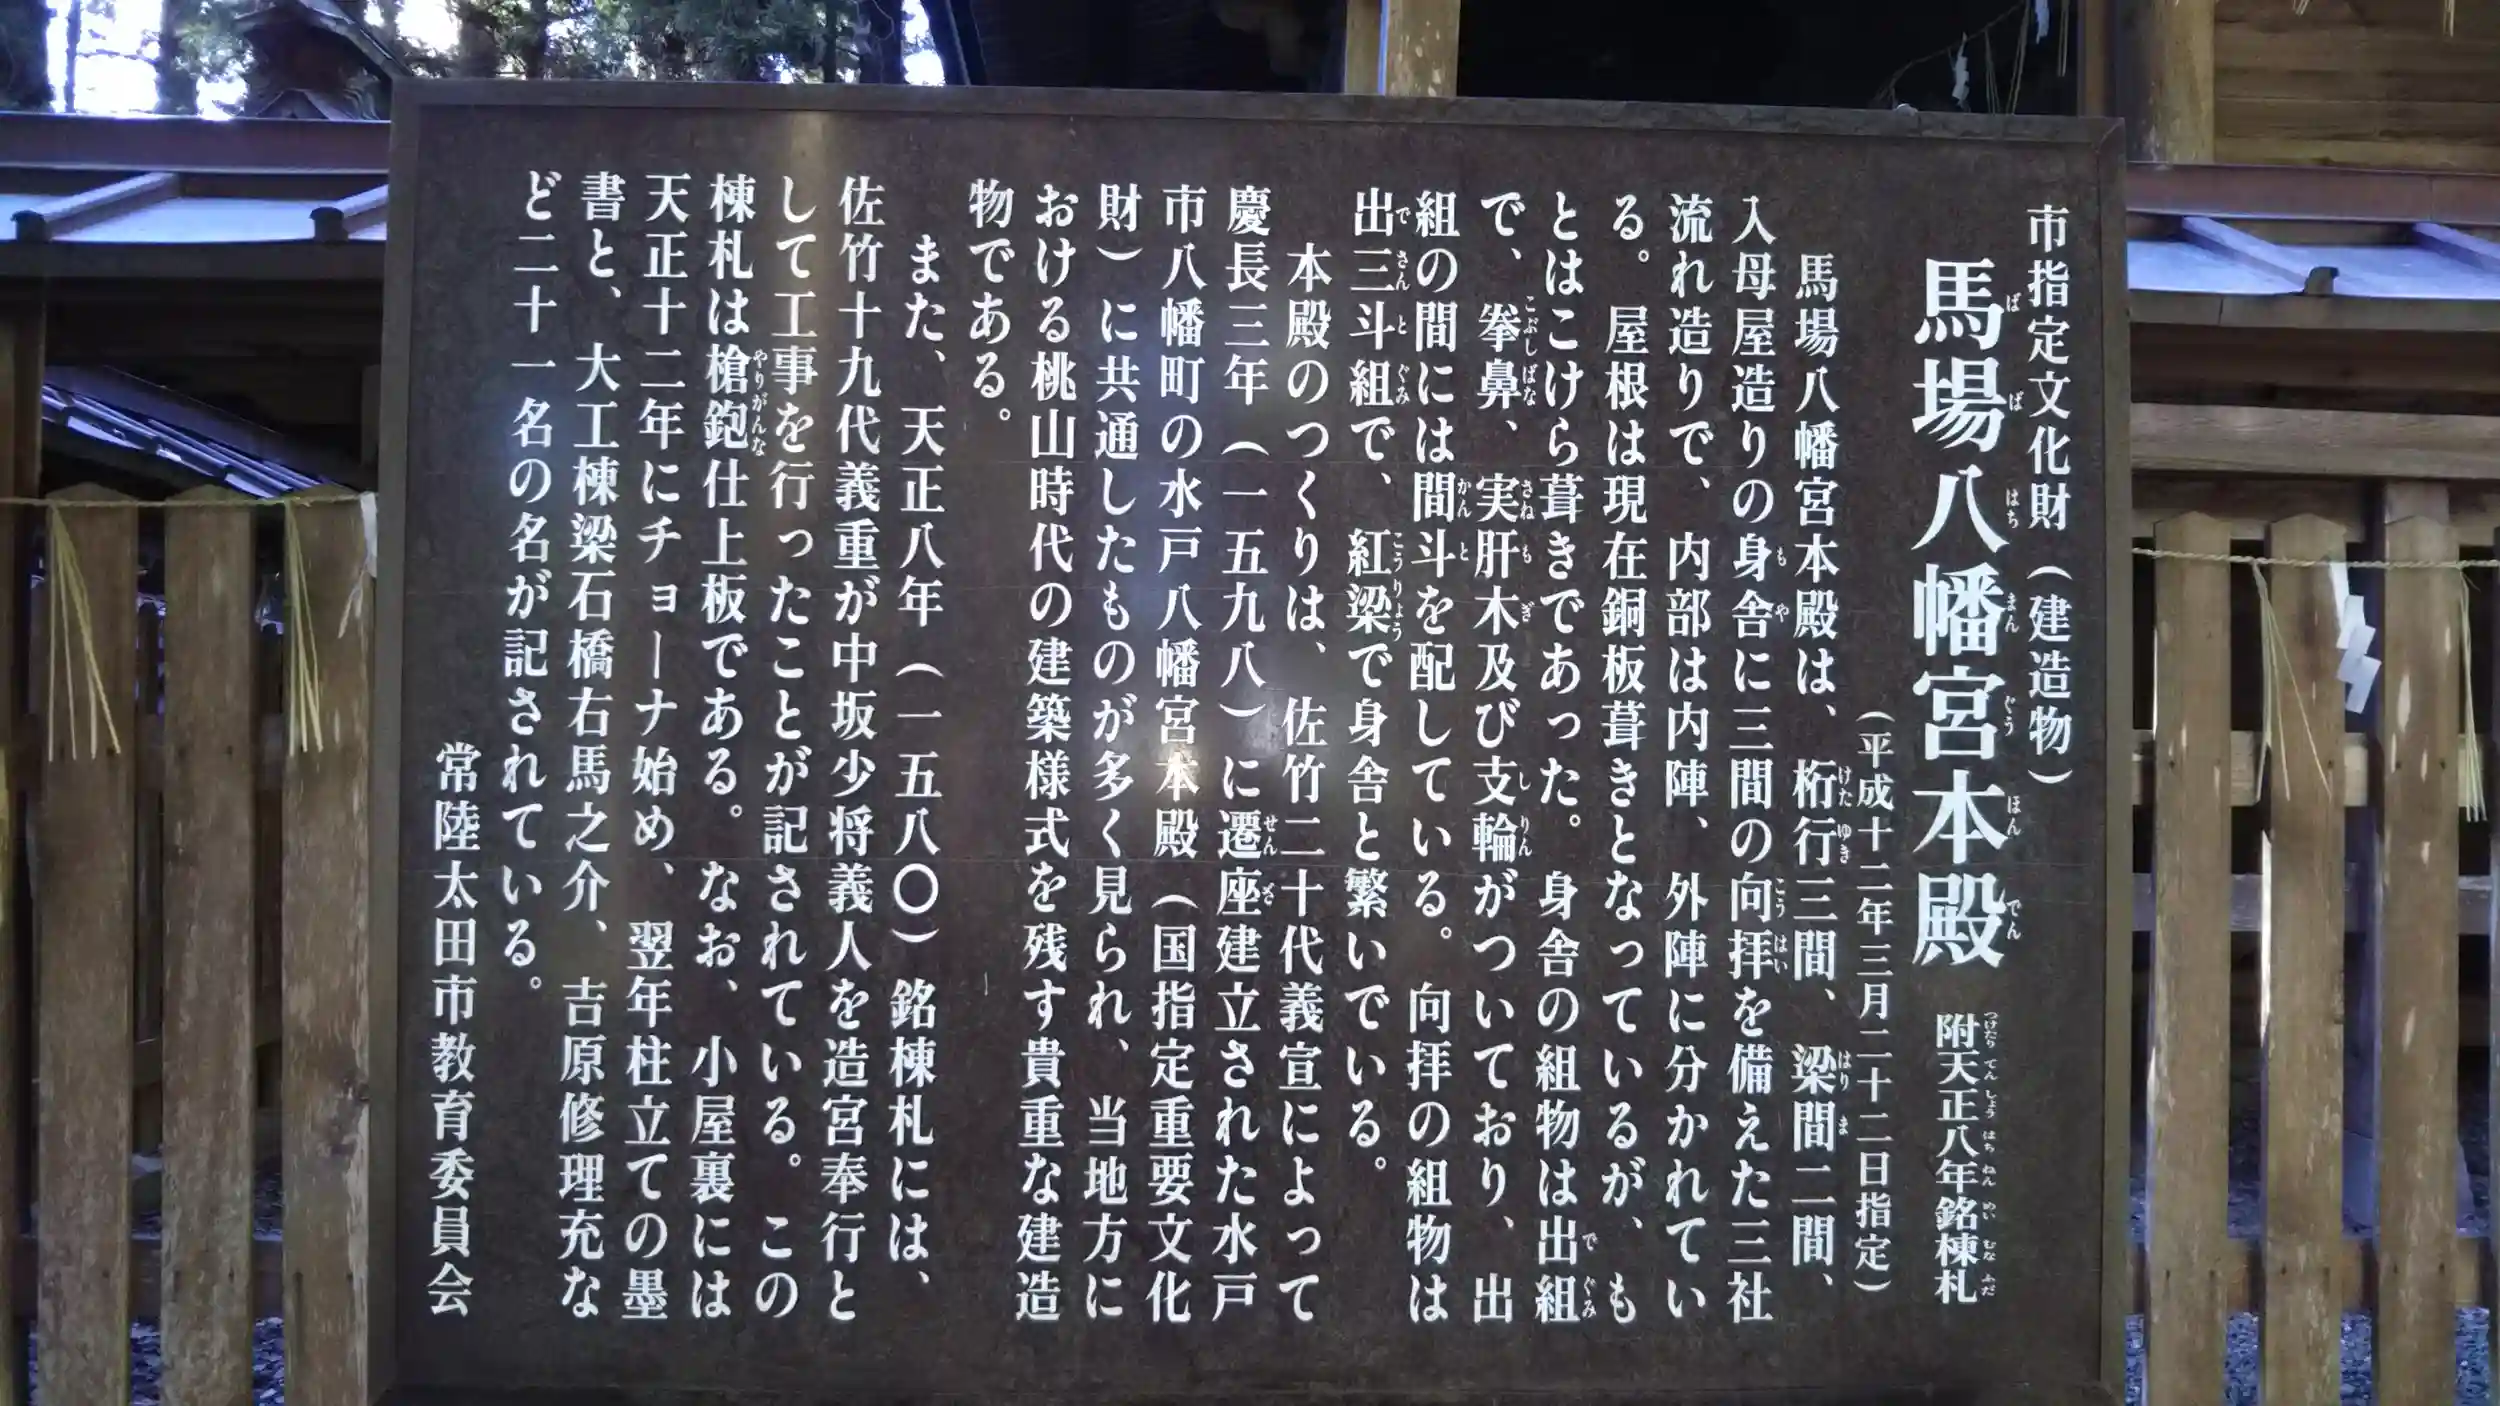 市指定文化財（建造物）
馬場八幡宮本殿 附天正八年銘棟札
（平成十二年三月二十二日指定）
馬場八幡宮本殿は、桁行三間、梁間二間、
入母屋造りの身舎に三間の向拝を備えた三社
流れ造りで、内部は内陣、外陣に分かれてい
る。屋根は現在銅板葺きとなっているが、も
とはこけら葺きであった。身舎の組物は出組
で、拳鼻、実肘木及び支輪がついており、出
組の間には間斗を配している。向拝の組物は
出三斗組で、紅梁で身舎と繁いでいる。
本殿のつくりは、佐竹二十代義宣によって
慶長三年（一五九八）に遷座建立された水戸
市八幡町の水戸八幡宮本殿（国指定重要文化
財）に共通したものが多く見られ、当地方に
おける桃山時代の建築様式を残す貴重な建造
物である。
また、天正八年（一五八〇）銘棟札には、
佐竹十九代義重が中坂少将義人を造宮奉行と
して工事を行ったことが記されている。この
棟札は槍鉋仕上板である。なお、小屋裏には
天正十二年にチョーナ始め、翌年柱立ての墨
書と、大工棟梁石橋右馬之介、吉原修理充な
ど二十一名の名が記されている。
常陸太田市教育委員会